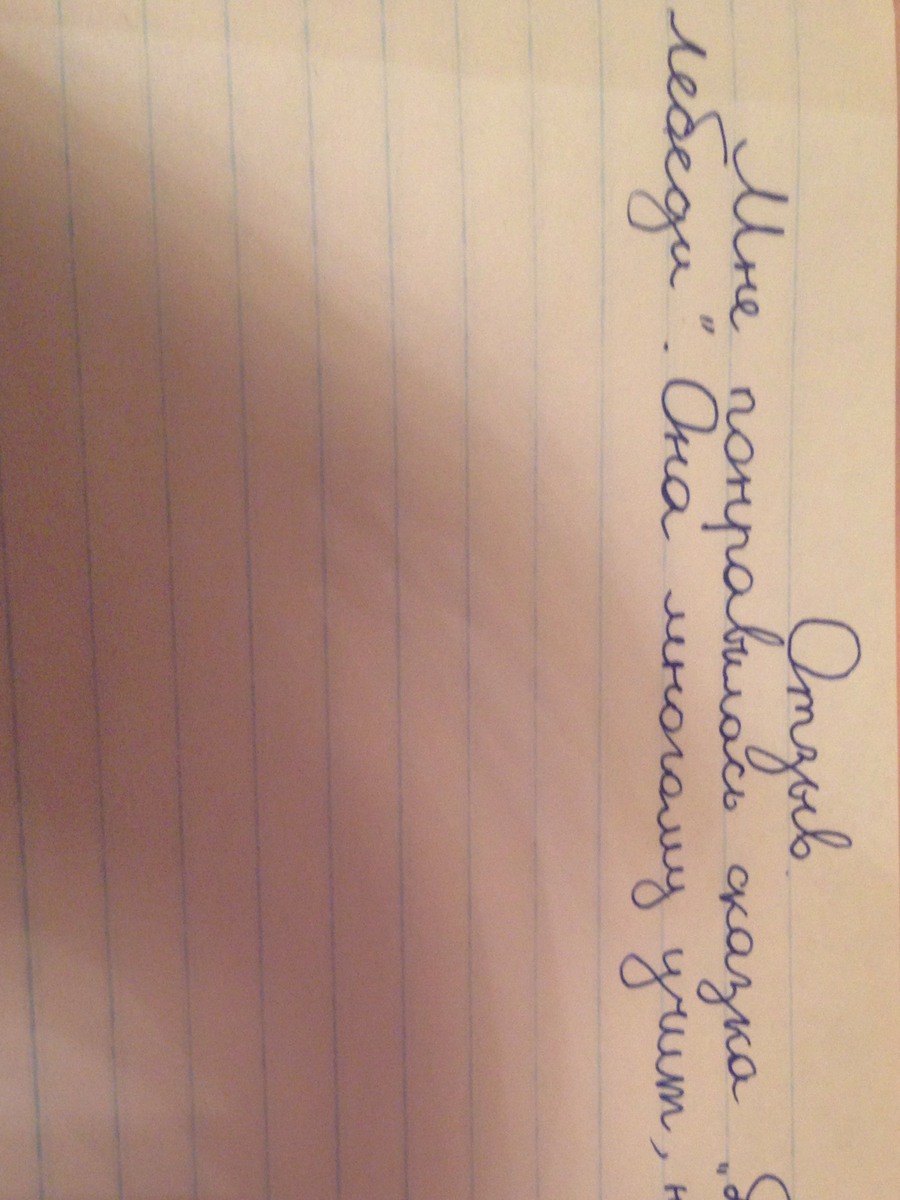 Отзыв.
Мне понравилась сказка "
лебеди". Она многому учит,